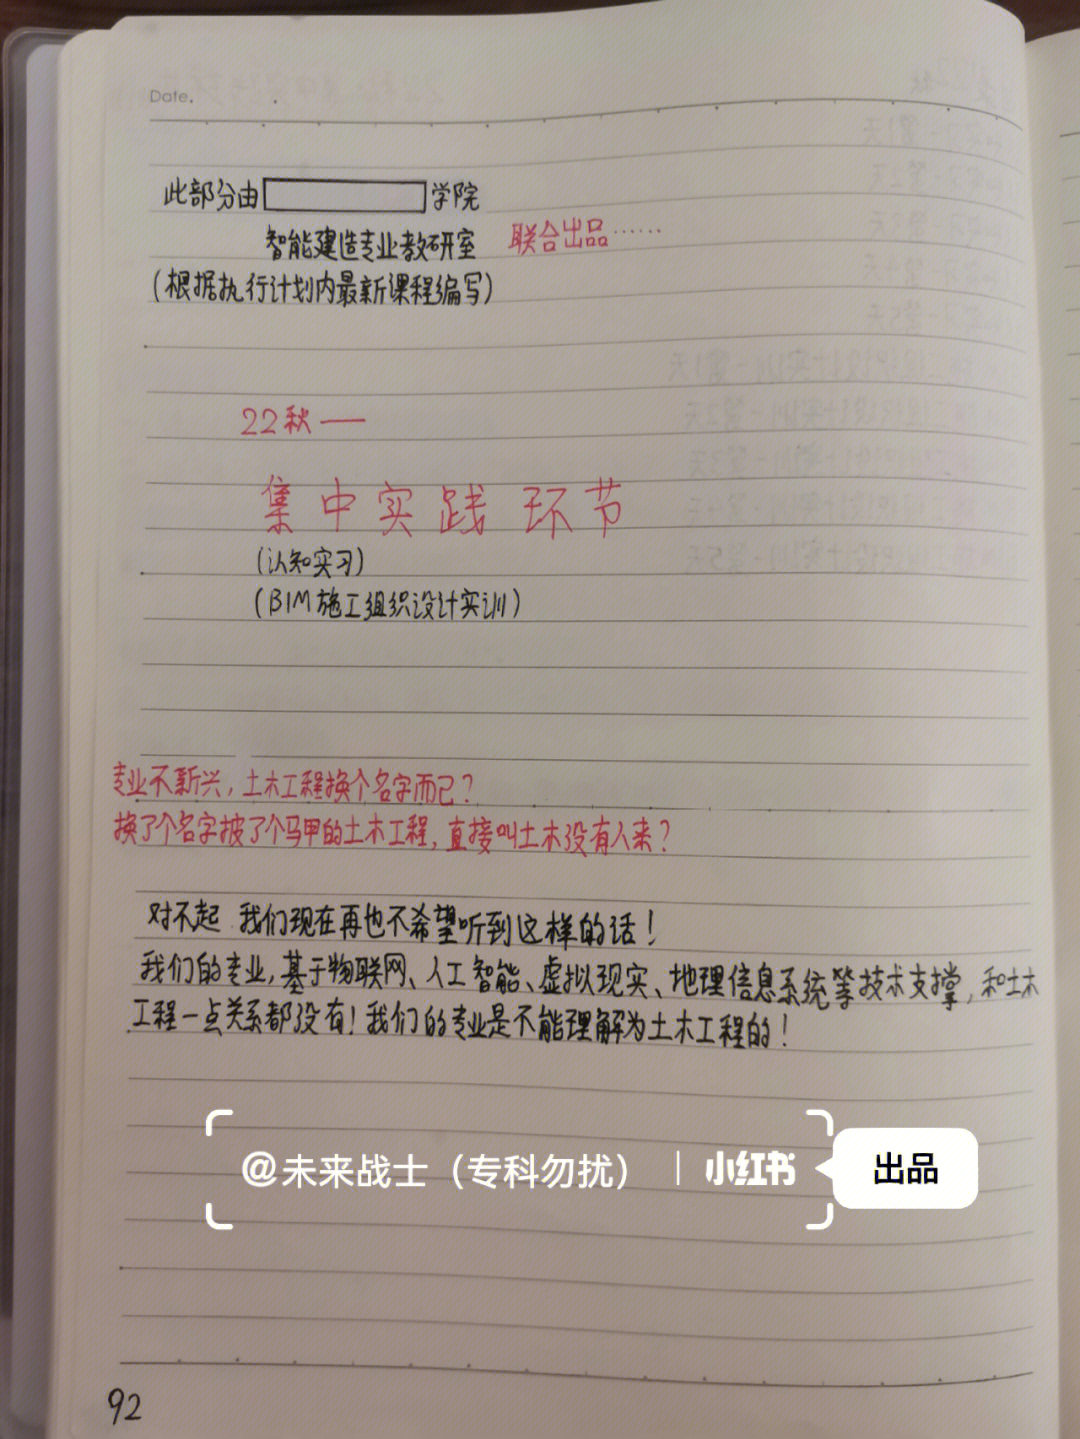 Date.
此部分由 学院
智能建造专业教研室 联合出品……
(根据执行计划内最新课程编写)
22秋——
集中实践环节
(认知实习)
(BIM施工组织设计实训)
专业不新兴,土木工程换个名字而已?
换了个名字披了个马甲的土木工程,直接叫土木没有人来?
对不起 我们现在再也不希望听到这样的话!
我们的专业,基于物联网、人工智能、虚拟现实、地理信息系统等技术支撑,和土木
工程一点关系都没有!我们的专业是不能理解为土木工程的!
@未来战士(专科勿扰) | 小红书 出品
92